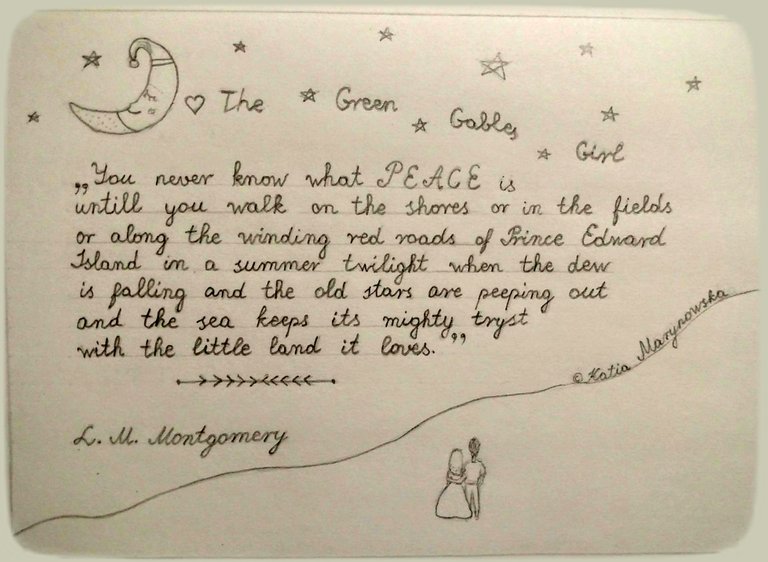 The Green Gables Girl
„You never know what PEACE is
untill you walk on the shores or in the fields
or along the winding red roads of Prince Edward
Island in a summer twilight when the dew
is falling and the old stars are peeping out
and the sea keeps its mighty tryst
with the little land it loves.”
© Katia Marynowska
L. M. Montgomery